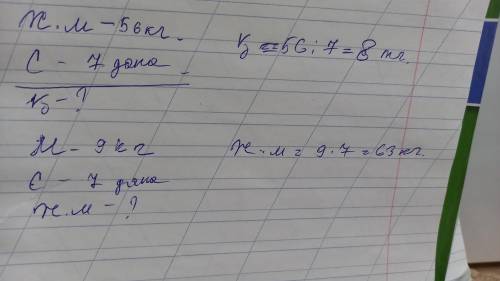 Ж.М – 56 кг.
С – 7 дана.
Қ – ?
Қ = 56 : 7 = 8 кг.
М – 9 кг
С – 7 дана
Ж.М – ?
Ж.М = 9 · 7 = 63 кг.